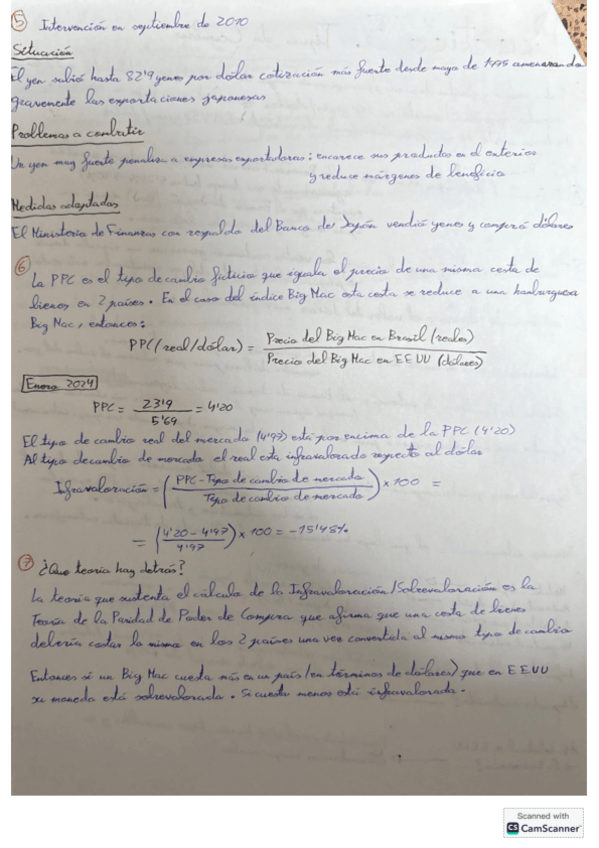 ⑤ Intervención en septiembre de 2010
Situación
El yen subió hasta 82'9 yenes por dólar cotización más fuerte desde mayo de 1995 amenazando
gravemente las exportaciones japonesas
Problemas a combatir
Un yen muy fuerte penaliza a empresas exportadoras: encarece sus productos en el exterior
y reduce márgenes de beneficio
Medidas adaptadas
El Ministerio de Finanzas con respaldo del Banco de Japón vendió yenes y compró dólares
⑥
La PPC es el tipo de cambio ficticio que iguala el precio de una misma cesta de
bienes en 2 países. En el caso del índice Big Mac esta cesta se reduce a una hamburguesa
Big Mac, entonces:
PPC (real/dólar) = Precio del Big Mac en Brasil (reales)
Precio del Big Mac en EEUU (dólares)
Enero 2024
PPC = 23'9 = 4'20
5'69
El tipo de cambio real del mercado (4'97) está por encima de la PPC (4'20)
Al tipo de cambio de mercado el real esta infravalorado respecto al dólar
Infravaloración = (PPC - Tipo de cambio de mercado) × 100 =
Tipo de cambio de mercado
= (4'20 - 4'97) × 100 = -15'48%
4'97
⑦ ¿Que teoría hay detrás?
La teoría que sustenta el cálculo de la Infravaloración/Sobrevaloración es la
Teoría de la Paridad de Poder de Compra que afirma que una cesta de bienes
debería costar lo mismo en los 2 países una vez convertida al mismo tipo de cambio
Entonces si un Big Mac cuesta más en un país (en términos de dólares) que en EEUU
su moneda está sobrevalorada. Si cuesta menos está infravalorada.
Scanned with
CS CamScanner